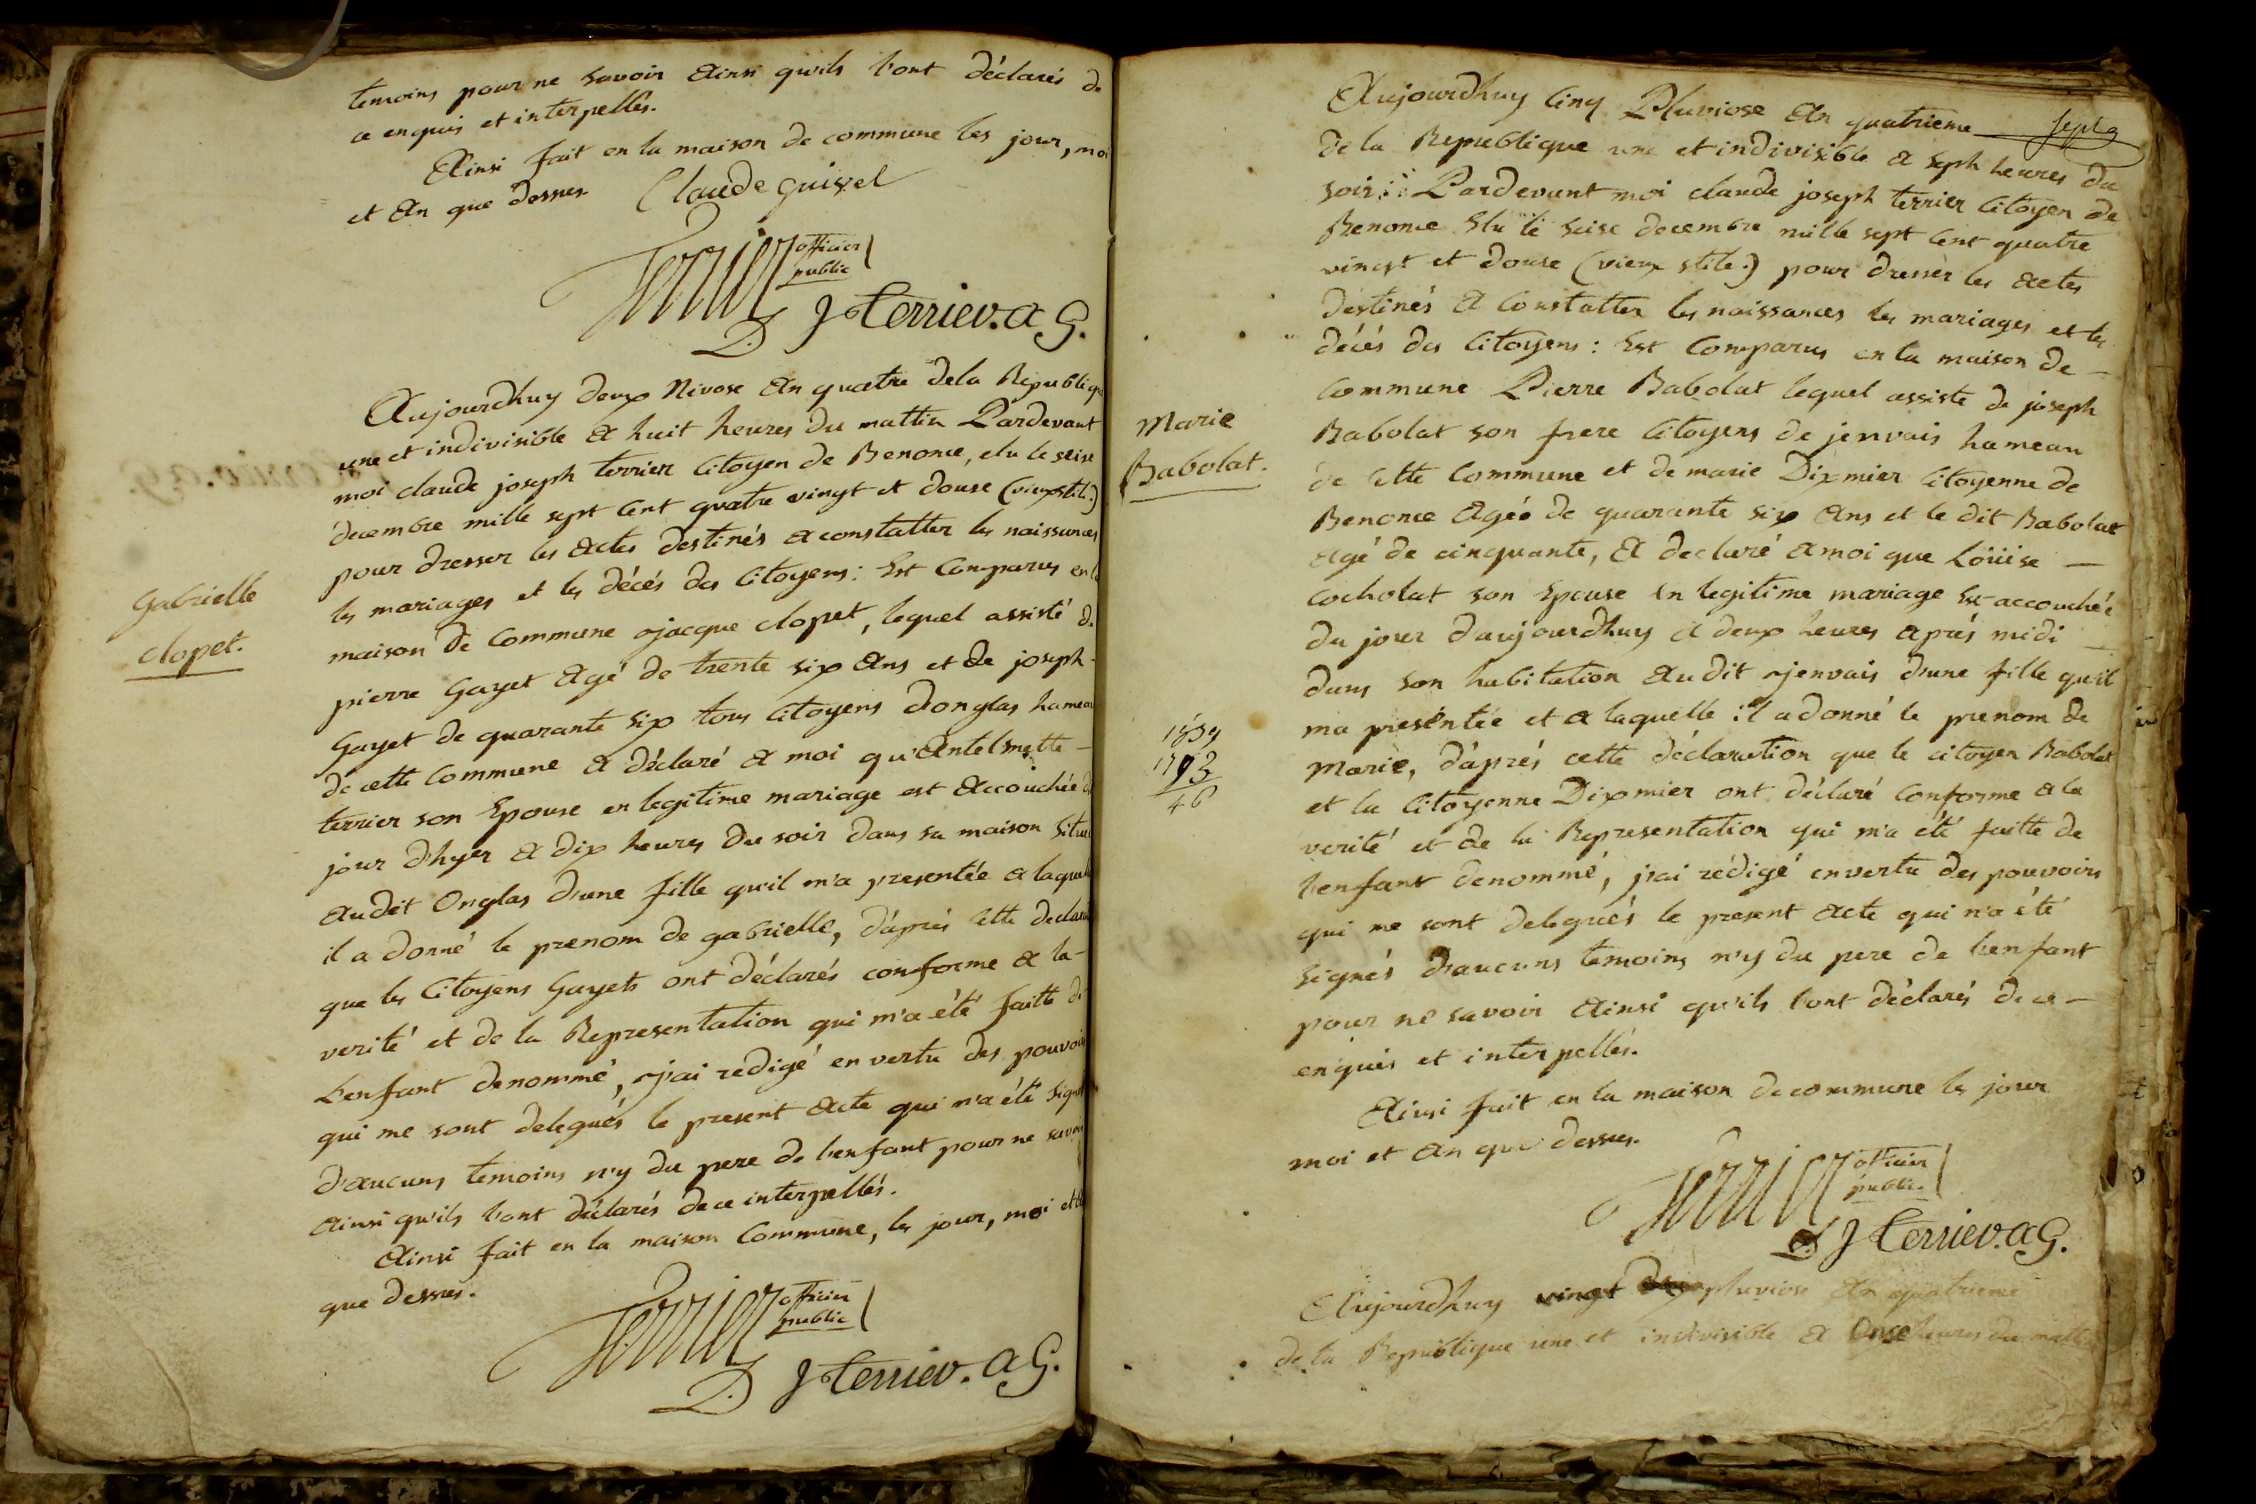 temoins pour ne savoir Ainsi qu'ils l'ont déclarés de
ce enquis et interpellés.
Ainsi fait en la maison de commune les jour, moi
et An que dessus Claude guisel
Terrier officier
public
J Terrier. a G.
Gabrielle
clopet.
Aujourdhuy deux Nivose An quatre dela Republique
une et indivisible A huit heures du mattin Pardevant
moi claude joseph terrier Citoyen de Benonce, elu le seise
decembre mille sept Cent quatre vingt et douse (vieux stile.)
pour dresser les Actes destinés A constatter les naissances
les mariages et les décés des Citoyens: Est Comparus en la
maison de Commune jacque clopet, lequel assisté de
pierre Gayet Agé de trente six Ans et de joseph
Gayet de quarante six tous Citoyens donglas hameau
de cette Commune A déclaré A moi qu'Antelmette
terrier son Epouse en legitime mariage est Accouchée
jour d'hyer A dix heures Du soir dans sa maison
Audit Onglas d'une fille qu'il m'a presentée a laquelle
il a donné le prenom de gabrielle, d'aprés cette
que les Citoyens Gayets ont déclarés conforme A la
verité et de la Representation qui m'a été faitte de
L'enfant denommé, j'ai redigé en vertu des pouvoirs
qui me sont delegués le present Acte qui n'a été signé
d'Aucuns temoins n'y du pere de l'enfant pour ne savoir
Ainsi qu'ils l'ont déclarés de ce interpellés.
Ainsi fait en la maison Commune, les jour, moi et
que dessus.
Terrier officier
public
J Terrier. a G.
Aujourdhuy Cinq Pluviose An quatrieme sept 9
de la Republique une et indivisible A seph heures du
soir Pardevant moi claude joseph terrier Citoyen de
Benonce Elu le seise decembre mille sept Cent quatre
vingt et douse (vieux stile.) pour dresser les Actes
destinés A Constatter les naissances les mariages et les
décés des Citoyens: Est Comparus en la maison de
Commune Pierre Babolat lequel assiste de joseph
Marie
Babolat.
Babolat son frere Citoyens de jenvais hameau
de Cette Commune et de marie Dixmier Citoyenne de
Benonce Ageé de quarante six Ans et le dit Babolat
Agé de cinquante, A declaré A moi que Loüise
Cocholat son Epouse En legitime mariage Est accouchée
du jour daujourdhuy A deux heures Aprés midi
dans son habitation Audit jenvais d'une fille qu'il
ma presentée et A laquelle il a donné le prenom de
1839
1793
46
Marie, d'aprés cette déclaration que le citoyen Babolat
et la Citoyenne Dixmier ont déclaré Conforme A la
verité et de la Representation qui m'a été faitte de
l'enfant denommé, j'ai redigé en vertu des pouvoirs
qui me sont delegués le present Acte qui n'a été
signés d'aucuns temoins n'y du pere de l'enfant
pour ne savoir Ainsi qu'ils l'ont déclarés de ce
enquis et interpellés.
Ainsi fait en la maison de commune les jour
moi et An que dessus.
Terrier officier
public
J Terrier. a G.
Aujourdhuy vingt pluviose An quatrieme
de la Republique une et indivisible A Onse heures du mattin